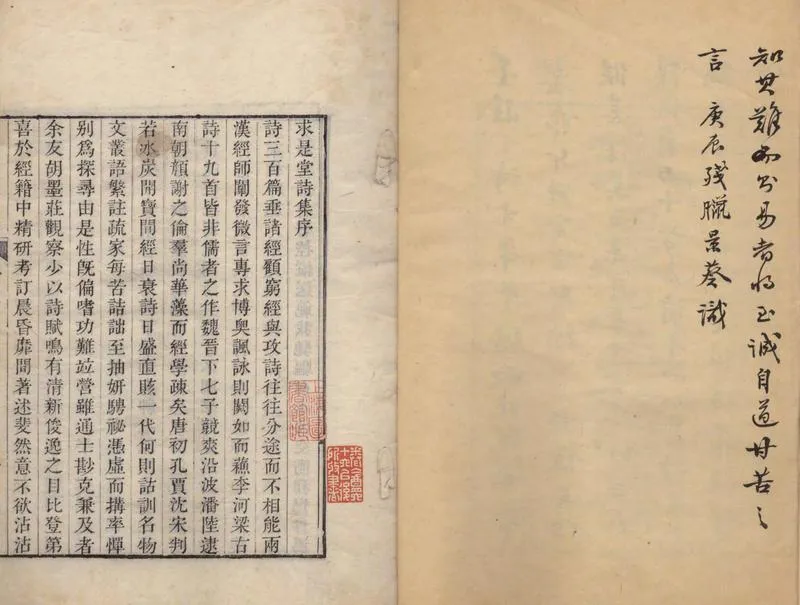 知其難 易者 至誠自道甘苦之
言 庚辰殘臘景葵識
求是堂詩集序
詩三百篇垂諸經顧窮經與攻詩往往分途而不相能兩
漢經師闡發微言專求博奧諷詠則闕如而蘓李河梁古
詩十九首皆非儒者之作魏晉下七子競爽沿波潘陸逮
南朝顏謝之倫羣尚華藻而經學疎矣唐初孔賈沈宋判
若冰炭開寶間經日衰詩日盛直賅一代何則詁訓名物
文叢語繁註疏家每苦詰詘至抽妍騁祕憑虛而搆率憚
別爲探尋由是性旣偏嗜功難竝營雖通士尠克兼及者
余友胡墨莊觀察少以詩賦鳴有清新俊逸之目比登第
喜於經籍中精研考訂晨昏靡間著述斐然意不欲沾沾
上海圖
書館藏